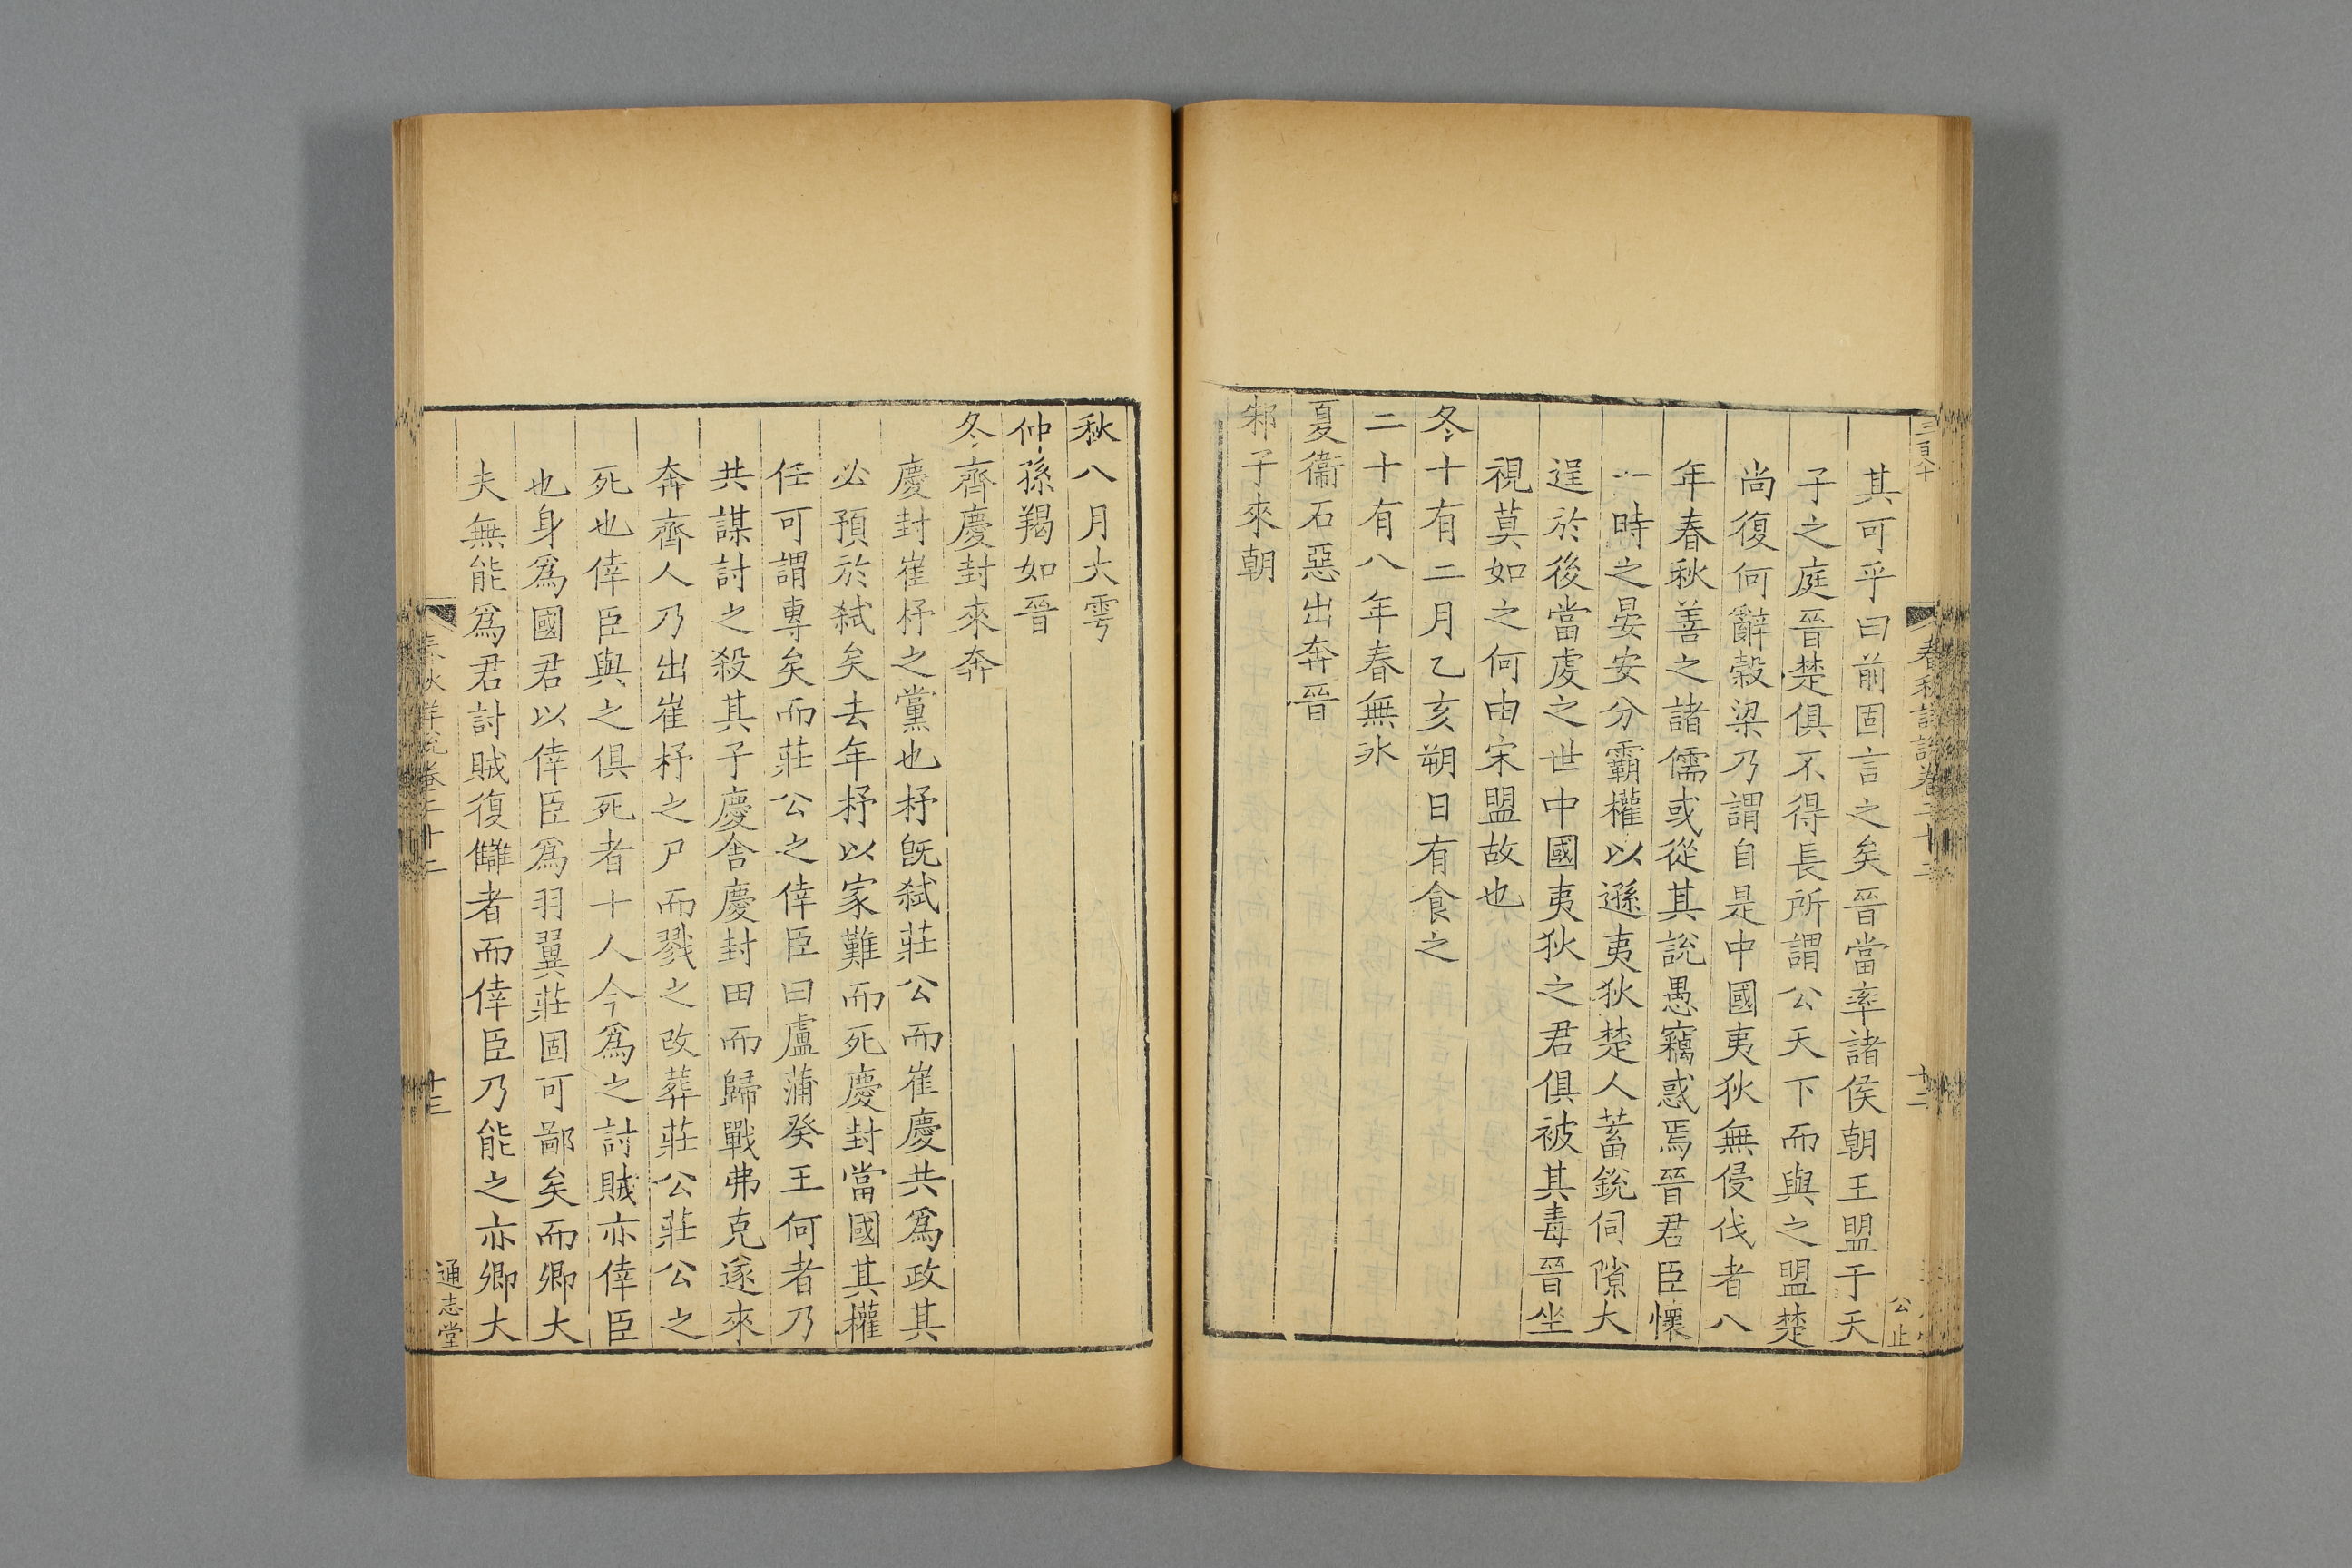 三百八十
春秋詳說卷二十二
十二
公止
其可乎曰前固言之矣晉當率諸侯朝王盟于天
子之庭晉楚俱不得長所謂公天下而與之盟楚
尚復何辭穀梁乃謂自是中國夷狄無侵伐者八
年春秋善之諸儒或從其說愚竊惑焉晉君臣懷
一時之晏安分霸權以遜夷狄楚人蓄銳伺隙大
逞於後當處之世中國夷狄之君俱被其毒晉坐
視莫如之何由宋盟故也
冬十有二月乙亥朔日有食之
二十有八年春無冰
夏衞石惡出奔晉
邾子來朝
秋八月大雩
仲孫羯如晉
冬齊慶封來奔
慶封崔杼之黨也杼旣弑莊公而崔慶共爲政其
必預於弑矣去年杼以家難而死慶封當國其權
任可謂專矣而莊公之倖臣曰盧蒲癸王何者乃
共謀討之殺其子慶舍慶封田而歸戰弗克遂來
奔齊人乃出崔杼之尸而戮之改葬莊公莊公之
死也倖臣與之俱死者十人今爲之討賊亦倖臣
也身爲國君以倖臣爲羽翼莊固可鄙矣而卿大
夫無能爲君討賊復讎者而倖臣乃能之亦卿大
春秋詳說卷二十二
十三
通志堂